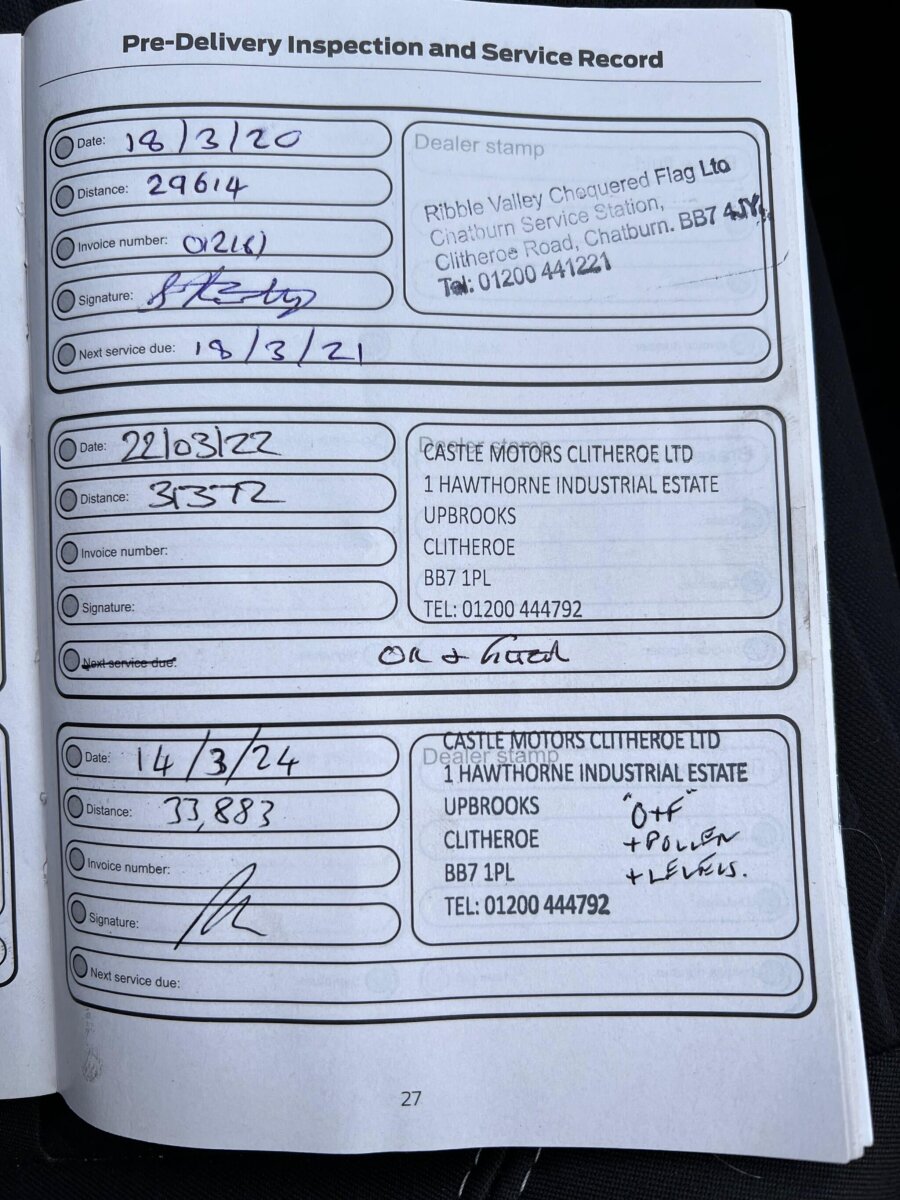 Pre-Delivery Inspection and Service Record
Date: 18/3/20
Distance: 29614
Invoice number:
Signature:
Next service due: 18/3/21
Dealer stamp
Ribble Valley Chequered Flag Ltd
Chatburn Service Station,
Clitheroe Road, Chatburn. BB7 4JY.
Tel: 01200 441221
Date: 22/03/22
Distance: 31372
Invoice number:
Signature:
Next service due:
Dealer stamp
CASTLE MOTORS CLITHEROE LTD
1 HAWTHORNE INDUSTRIAL ESTATE
UPBROOKS
CLITHEROE
BB7 1PL
TEL: 01200 444792
Date: 14/3/24
Distance: 33,883
Invoice number:
Signature:
Next service due:
Dealer stamp
CASTLE MOTORS CLITHEROE LTD
1 HAWTHORNE INDUSTRIAL ESTATE
UPBROOKS
CLITHEROE
BB7 1PL
TEL: 01200 444792
"O+F"
+POLLEN
+LEVELS.
27